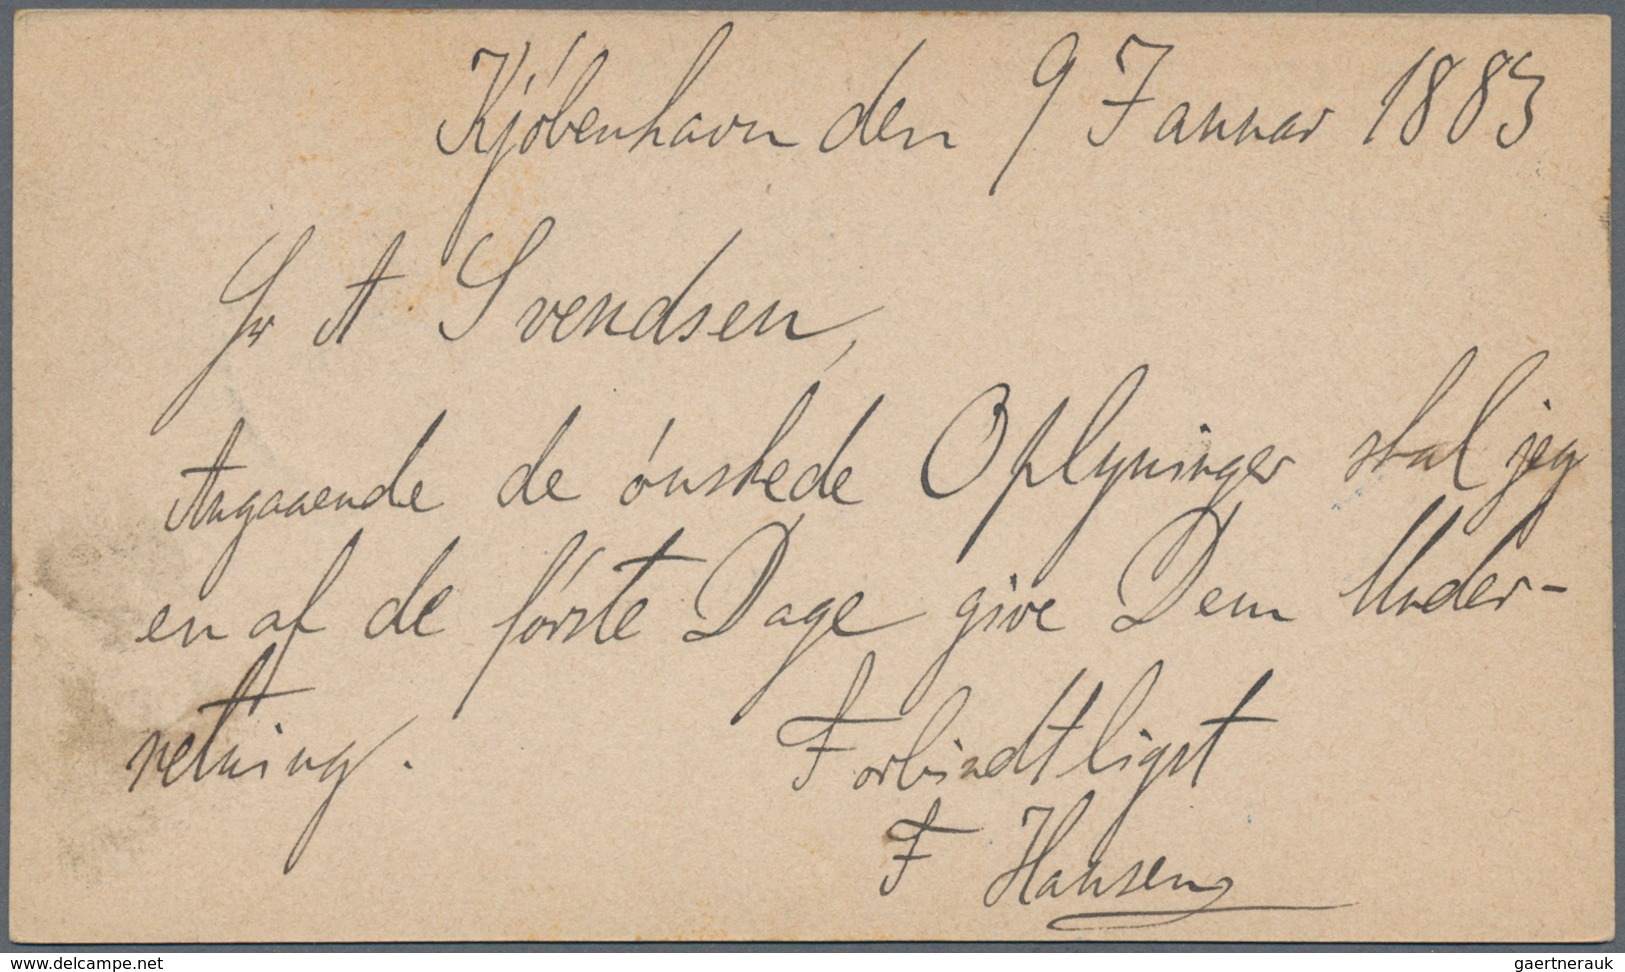 Kjóbenhavn den 9 Januar 1883
Hr A Svendsen,
Angaaende de ónskede Oplysninger skal jeg
en af de fórste Dage give Dem Under-
retning.
Forbindtligst
F Hansen
www.delcampe.net
gaertnerauk